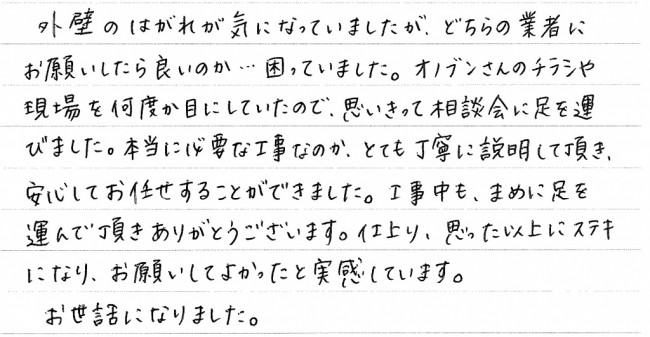 外壁のはがれが気になっていましたが、どちらの業者に
お願いしたら良いのか…困っていました。オノブンさんのチラシや
現場を何度か目にしていたので、思いきって相談会に足を運
びました。本当に必要な工事なのか、とても丁寧に説明して頂き、
安心してお任せすることができました。工事中も、まめに足を
運んで頂きありがとうございます。仕上り、思った以上にステキ
になり、お願いしてよかったと実感しています。
お世話になりました。